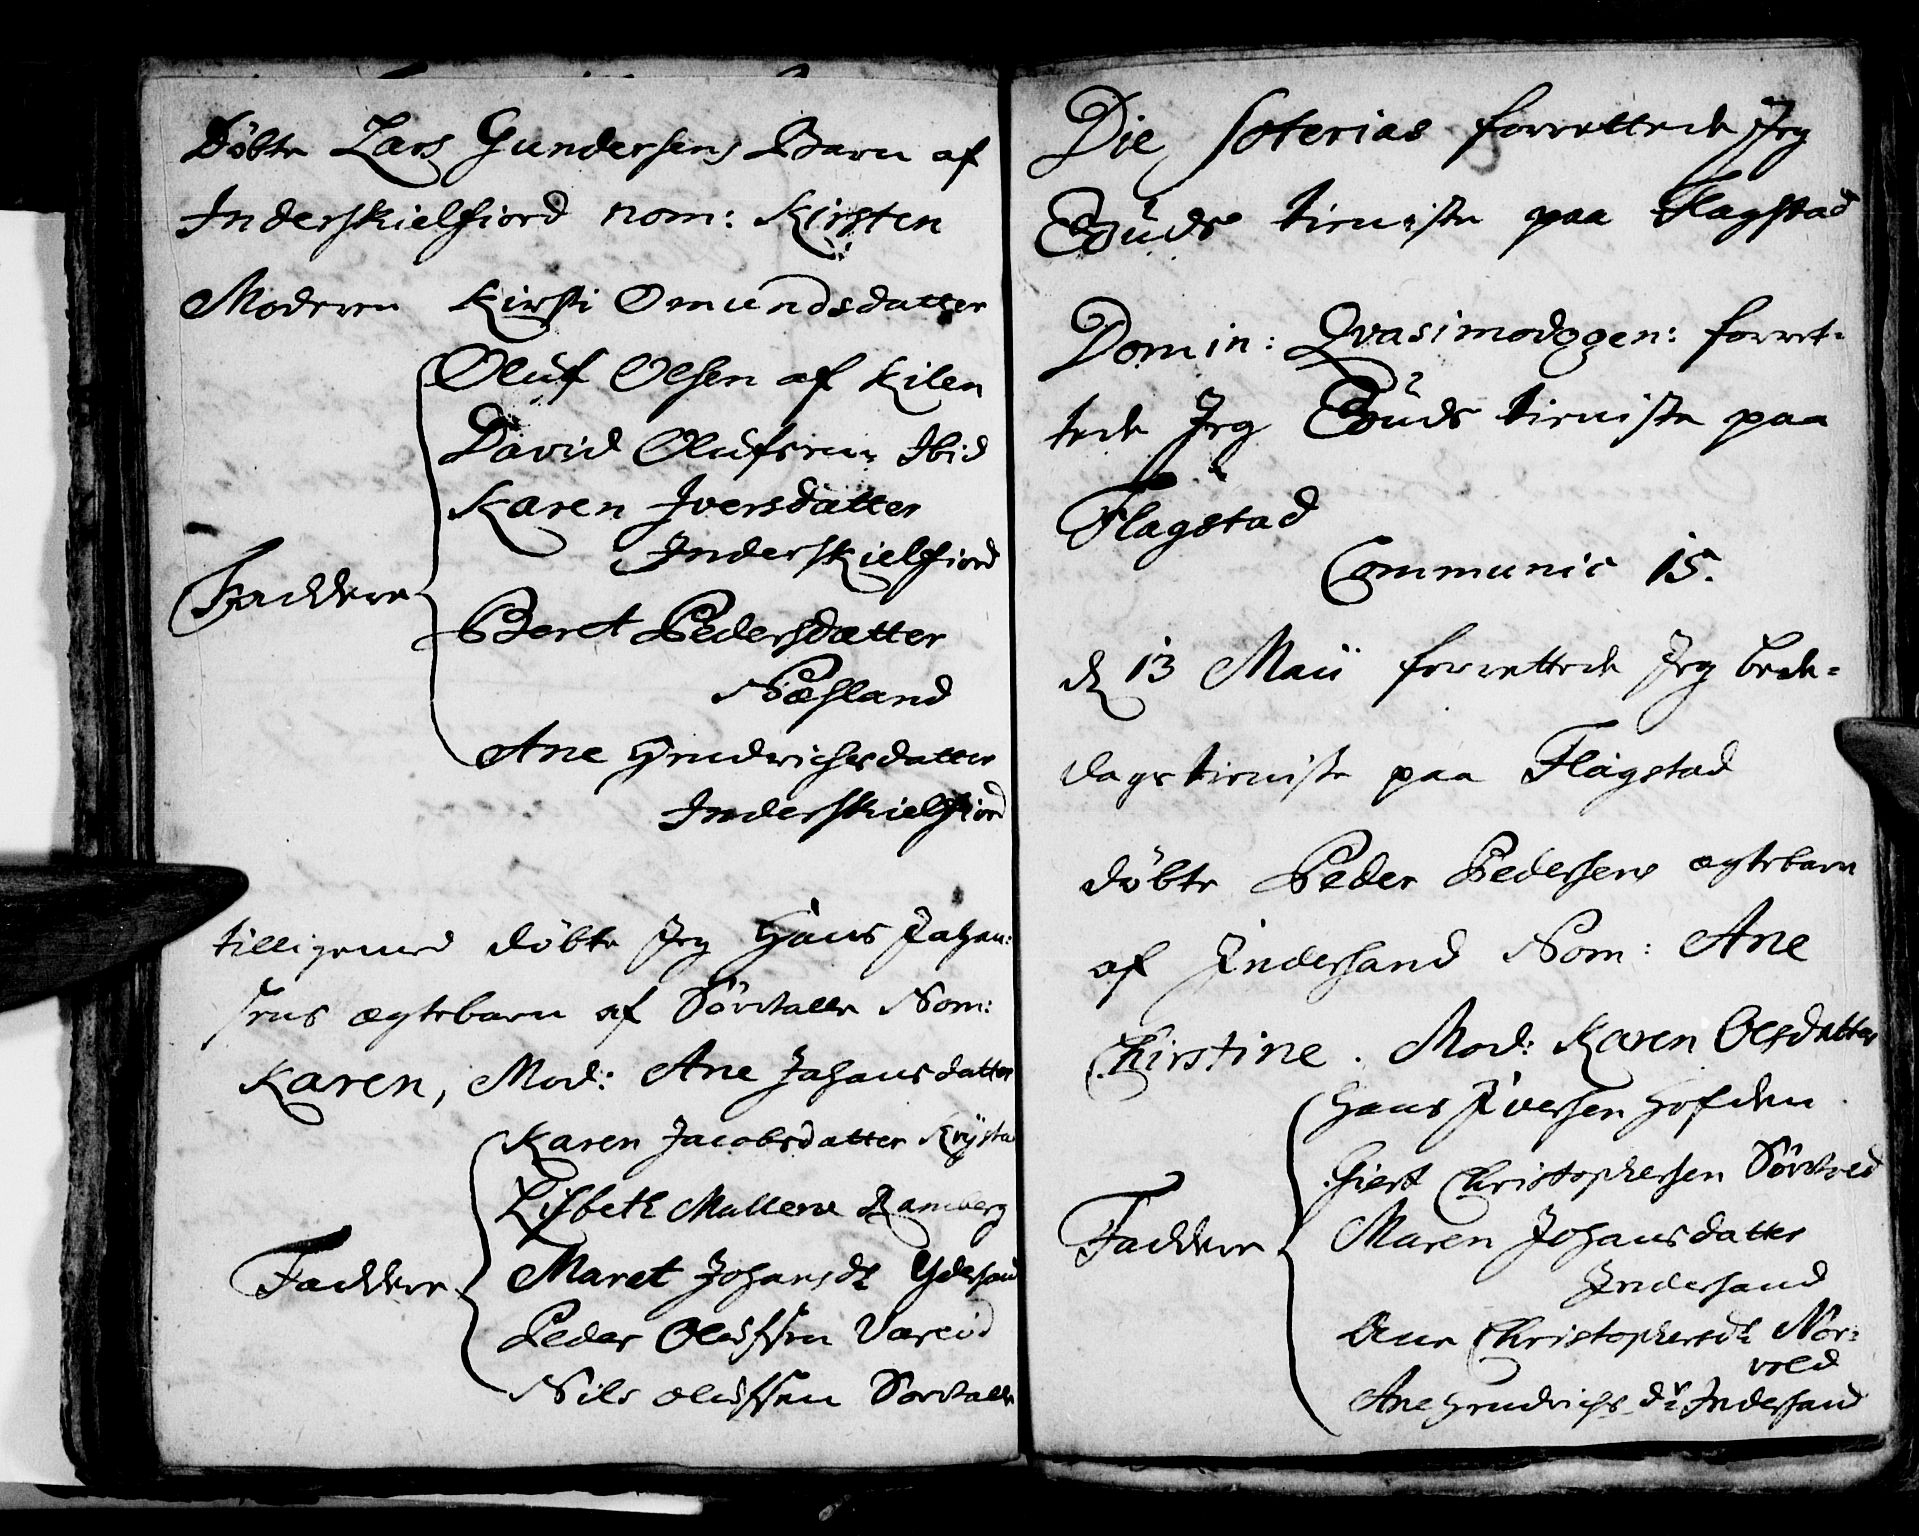 Döbte Lars Gundersens Barn af
Inderskielfiord nom: Kirsten
Moderen Kirsti Omundsdatter
Oluf Olsen af Kilen
David Olufsen Ibid
Karen Iversdatter
Inderskielfiord
Faddere
Beret Pedersdatter
Næsland
Ane Hendrichsdatter
Inderskielfiord
tilligemed döbte Jeg Hans Johan:
sens ægtebarn af Nom:
Karen, Mod: Ane Johansdatter
Karen Jacobsdatter
Lisbeth Mallene Ramberg
Faddere Maret Johansdt Ydersand
Peder Olufssen Vareid
Nils Olufssen
Die Soterias forrettede Jeg
Guds tieniste paa Flagstad
Domin: Qvasimodogen: forret-
tede Jeg Guds tieniste paa
Flagstad
Communic 15.
d 13 Maii forrettede Jeg bede-
dags tieniste paa Flagstad
döbte Peder Pedersens ægtebarn
af Indersand Nom: Ane
Chirstine. Mod: Karen Olsdatter
Hans Iversen Hofden
Giert Christophersen
Faddere Maren Johansdatter
Indersand
Christophersdt Nor:
vold
Ane Hendrichsdt Indersand